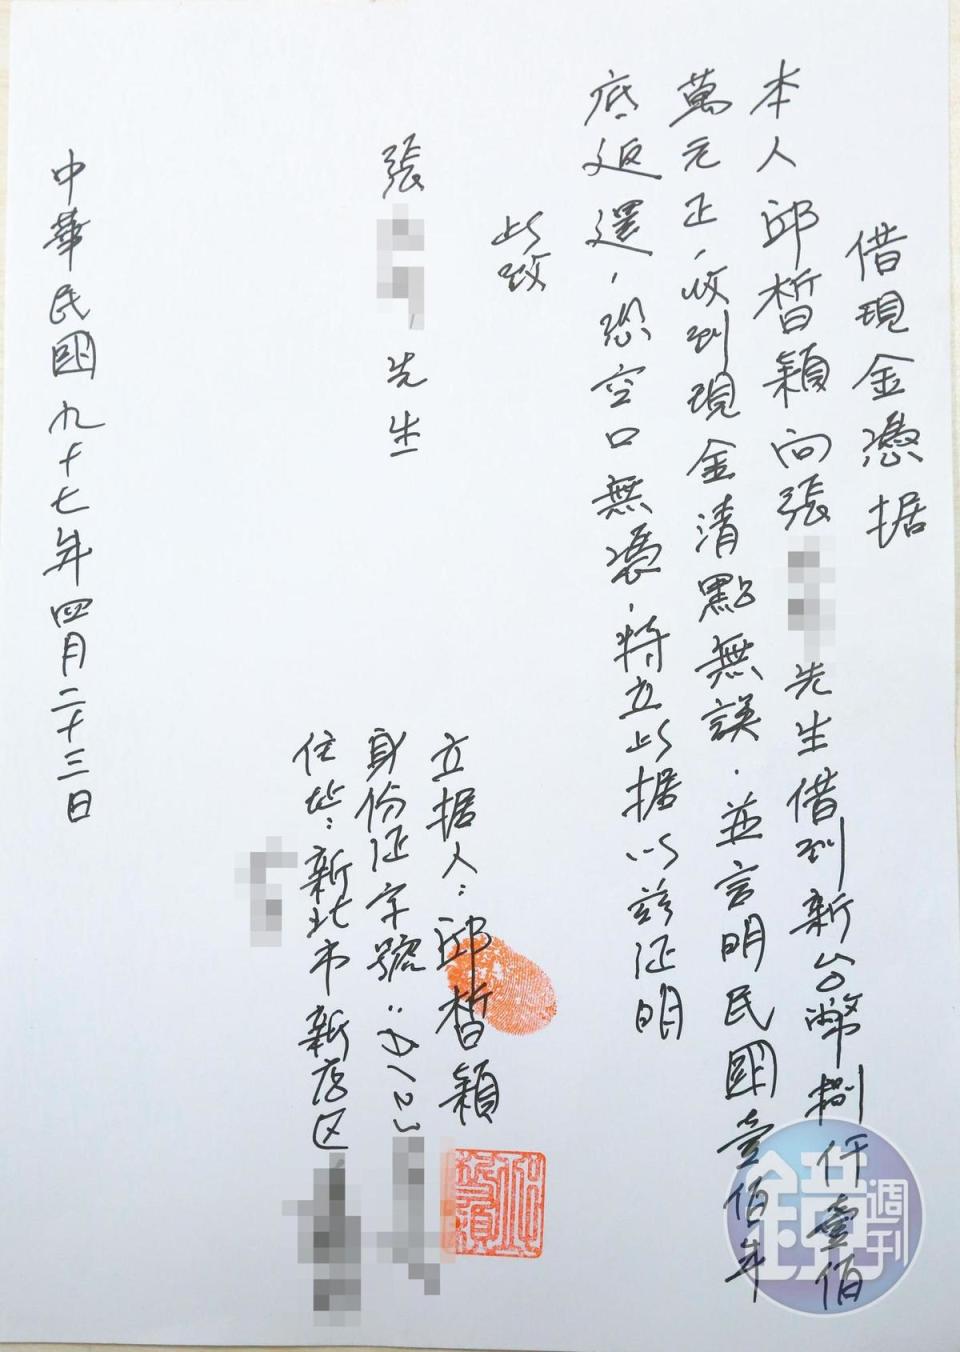 借現金憑据
本人邱晳穎向張先生借到新台幣捌仟壹佰
萬元正，收到現金清點無誤．並言明民國壹佰年
底返還，恐空口無憑，特立此据以茲证明
此致
張先生
立据人：邱晳穎
身份证字號：
住址：新北市新店区
中華民國九十七年四月二十三日
鏡週刊